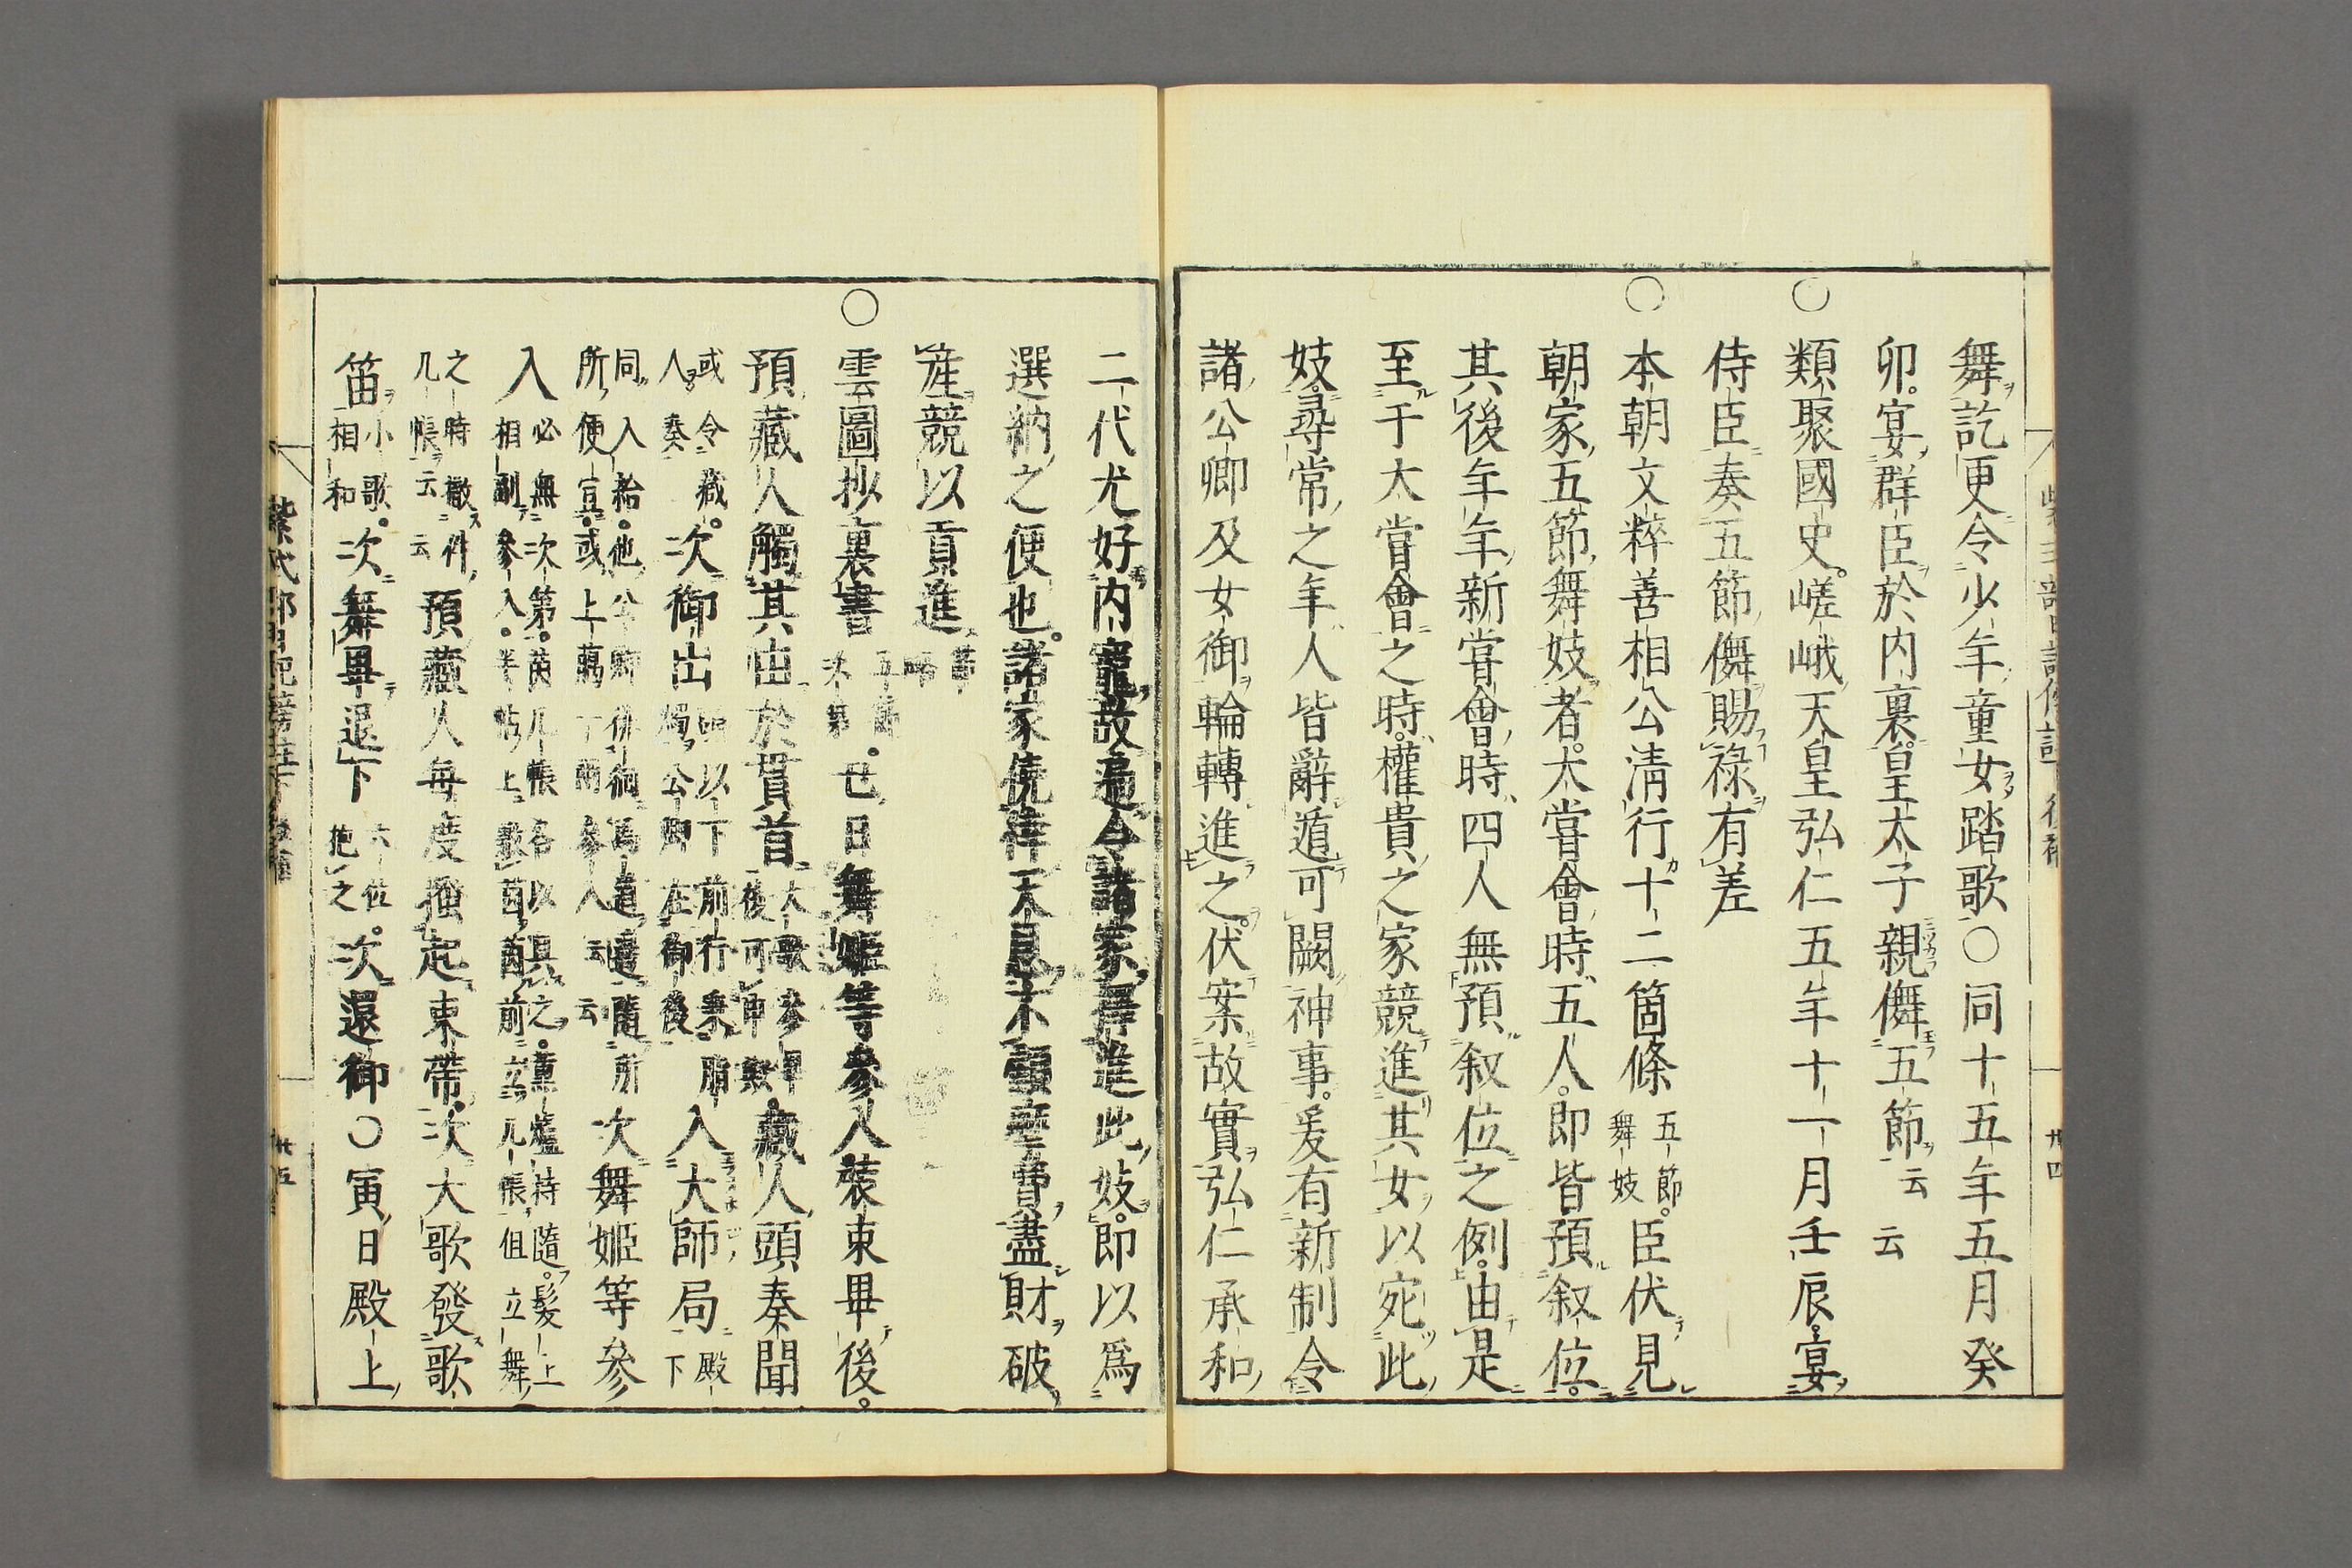 舞訖更令少年童女踏歌○同十五年五月癸
卯。宴群臣於内裏。皇太子親儛五節云云
○類聚國史。嵯峨天皇弘仁五年十一月壬辰。宴
侍臣奏五節儛賜祿有差
○本朝文粹善相公清行十二箇條五節。舞妓臣伏見
朝家五節舞妓者。大嘗會時五人。即皆預叙位。
其後年年新嘗會時四人無預叙位之例。由是
至于大嘗會之時。權貴之家競進其女以宛此
妓。尋常之年人皆辭遁可闕神事。爰有新制令
諸公卿及女御輪轉進之。伏案故實弘仁承和
二代尤好内寵故遍令諸家擇進此妓。即以爲
選納之便也。諸家僥倖天恩不顧糜費盡財破
産競以貢進
○雲圖抄裏書五節次第。丑日舞姬等參入裝束畢後。
預藏人觸其由於貫首。大歌參畢後可申歟。藏人頭奏聞
或令藏人奏。次御出 以下前行 公卿在御後 入大師局殿下
同入給。他公卿 所便宜。或上﨟 參入云云 次舞姬等參
入必無次第。茵几帳各以具之。薰爐持隨。髮上相副參入。 前立几帳但立舞
之時撤件几帳云云預藏人每度 起束帶。次大歌發歌
笛小歌。相和次舞畢退下六位。抱之次還御○寅日殿上
紫式部日記傍註下
卅四
卅五